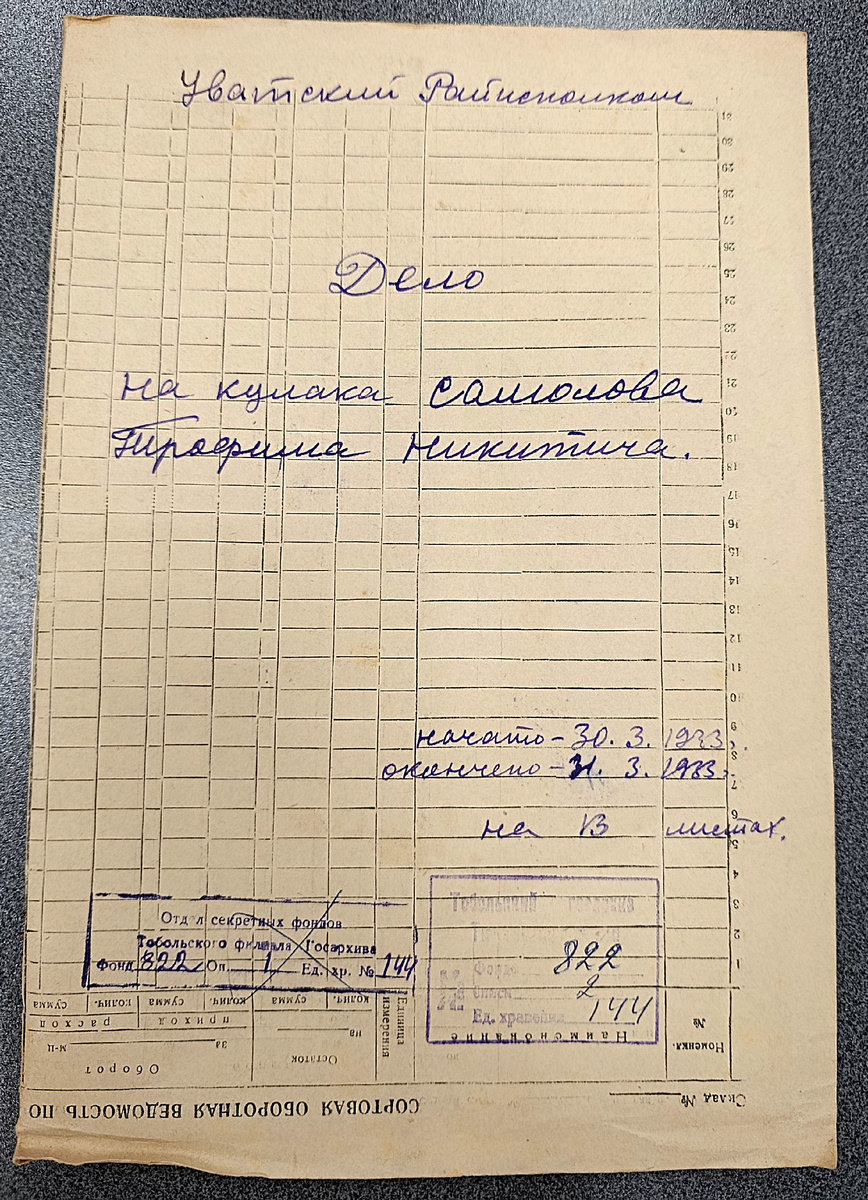 Уватский Райисполком
Дело
на кулака Самолова
Трофима Никитича.
начато – 30. 3. 1933.
окончено – 31. 3. 1933.
на 13 листах.
Отд л секретных фондов
Тобольского филиала Госархива
Фонд 822 Оп. 1 Ед. хр. № 144
Тобольский госархив
Фонд 822
Опись 2
Ед. хранения 144
31
30
29
28
27
26
25
24
23
22
21
20
19
18
17
16
15
14
13
12
11
10
9
8
7
6
5
4
3
2
1
СОРТОВАЯ ОБОРОТНАЯ ВЕДОМОСТЬ ПО
Склад №
Номенкл. №
Наименование
Единица измерения
Остаток
на
колич. сумма
Оборот
за м-ц
приход
расход
колич. сумма колич. сумма